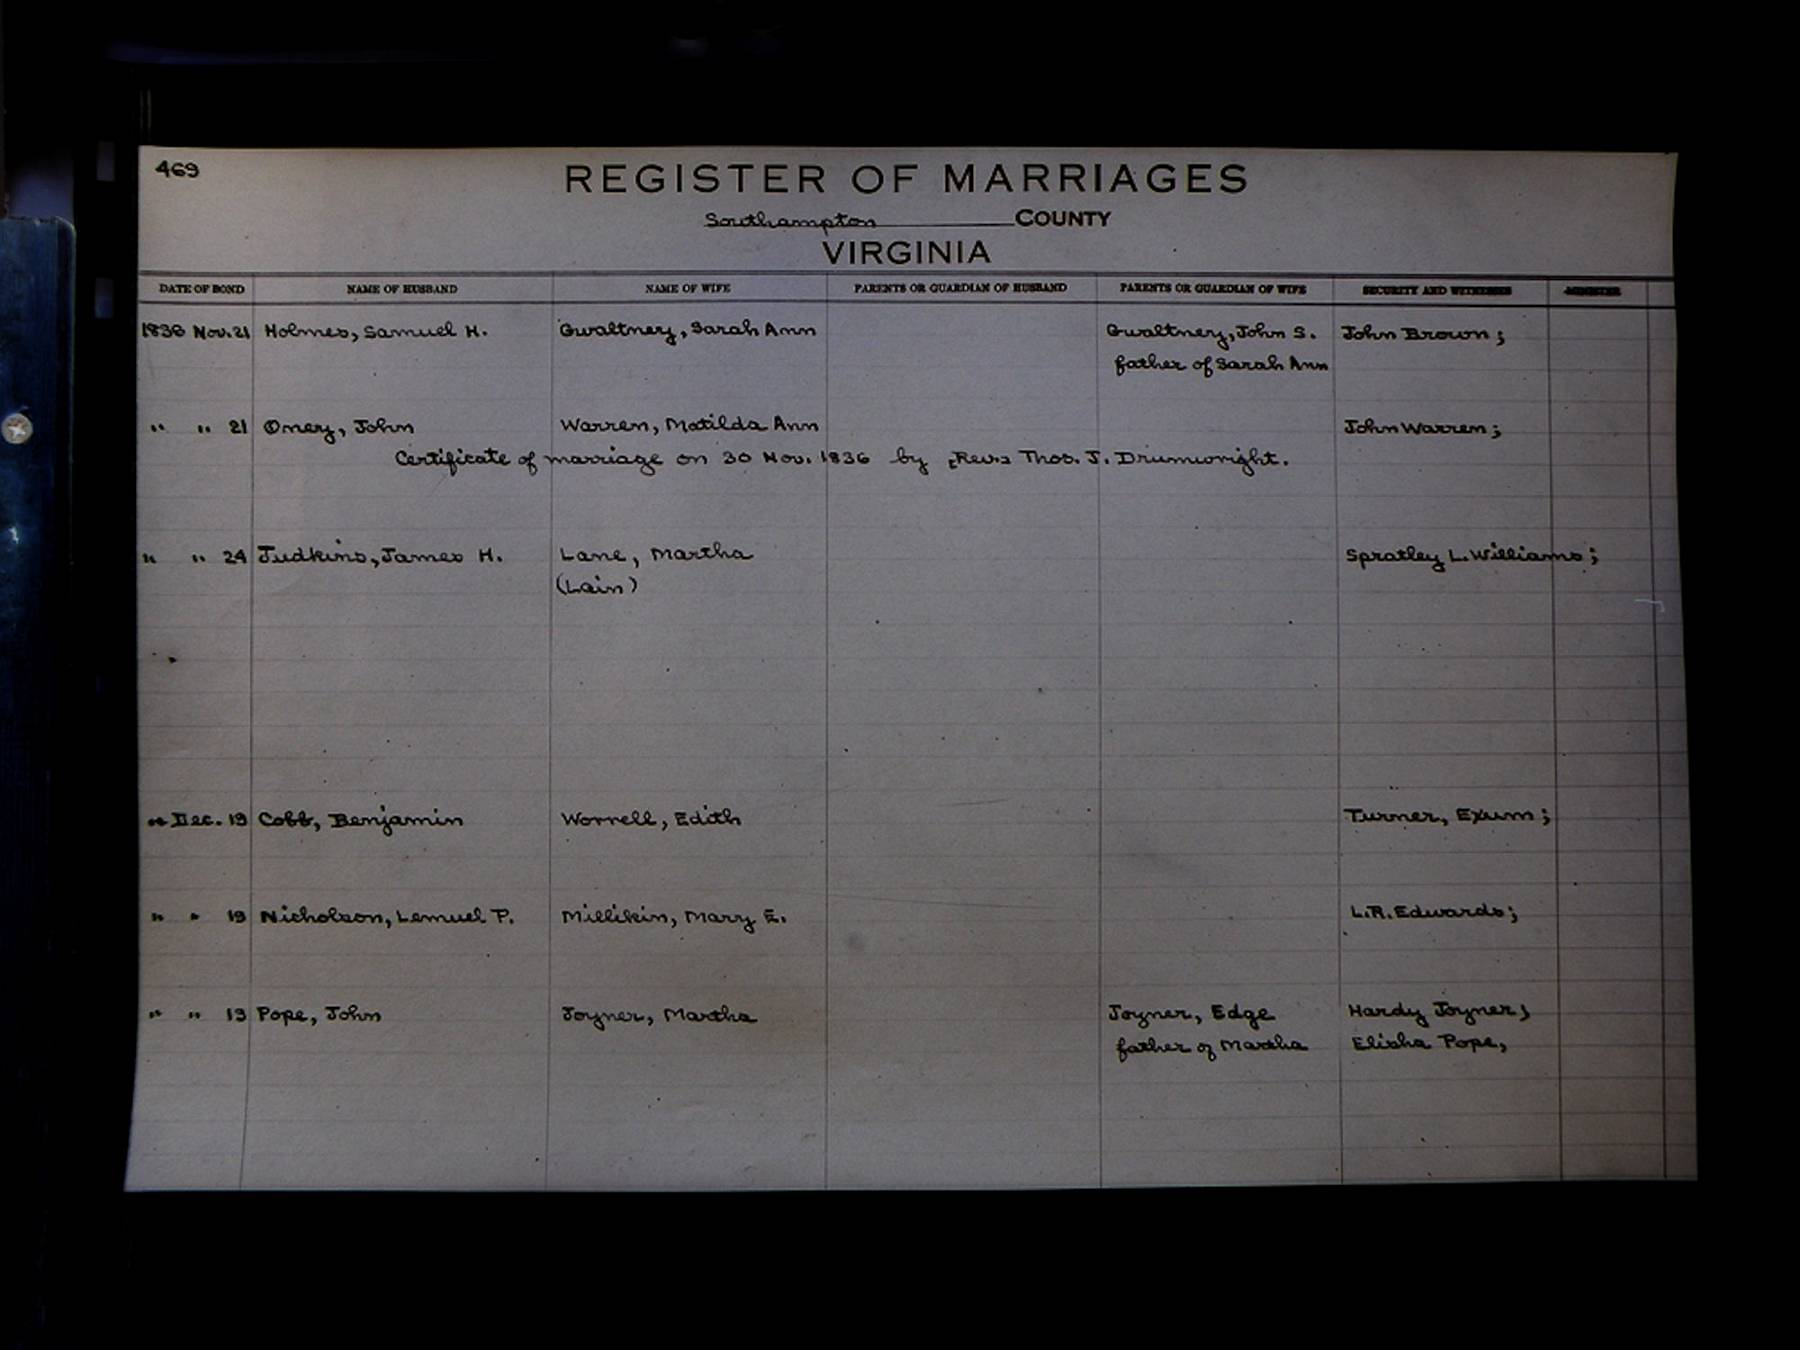 469
REGISTER OF MARRIAGES
Southampton COUNTY
VIRGINIA
DATE OF BOND NAME OF HUSBAND NAME OF WIFE PARENTS OR GUARDIAN OF HUSBAND PARENTS OR GUARDIAN OF WIFE SECURITY AND WITNESSES MINISTER
1836 Nov. 21 Holmes, Samuel H. Gwaltney, Sarah Ann Gwaltney, John S. John Brown;
father of Sarah Ann
" " 21 Oney, John Warren, Matilda Ann John Warren;
Certificate of marriage on 30 Nov. 1836 by [Rev.] Thos. J. Drumwright.
" " 24 Judkins, James H. Lane, Martha Spratley L. Williams;
(Lain)
" Dec. 19 Cobb, Benjamin Worrell, Edith Turner, Exum;
" " 19 Nicholson, Lemuel P. Millikin, Mary E. L.R. Edwards;
" " 13 Pope, John Joyner, Martha Joyner, Edge Hardy Joyner;
father of Martha Elisha Pope,